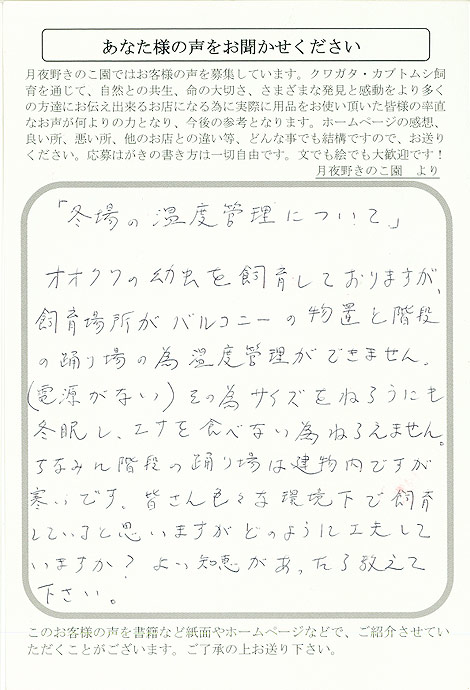 あなた様の声をお聞かせください
月夜野きのこ園ではお客様の声を募集しています。クワガタ・カブトムシ飼
育を通じて、自然との共生、命の大切さ、さまざまな発見と感動をより多く
の方達にお伝え出来るお店になる為に実際に用品をお使い頂いた皆様の率直
なお声が何よりの力となり、今後の参考となります。ホームページの感想、
良い所、悪い所、他のお店との違い等、どんな事でも結構ですので、お送り
ください。応募はがきの書き方は一切自由です。文でも絵でも大歓迎です！
月夜野きのこ園　より
「冬場の温度管理について」
オオクワの幼虫を飼育しておりますが、
飼育場所がバルコニーの物置と階段
の踊り場の為温度管理ができません。
(電源がない)その為サイズをねろうにも
冬眠し、エサを食べない為ねろえません。
ちなみに階段の踊り場は建物内ですが
寒いです。皆さん色々な環境下で飼育
していると思いますがどのように工夫して
いますか？よい知恵があったら教えて
下さい。
このお客様の声を書籍など紙面やホームページなどで、ご紹介させてい
ただくことがございます。ご了承の上お送り下さい。